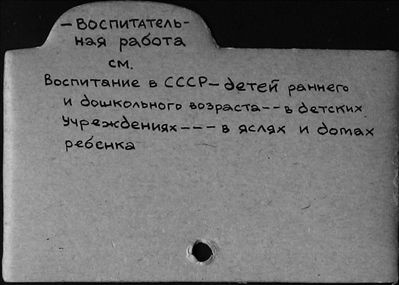 – Воспитатель-
ная работа
см.
Воспитание в СССР – детей раннего
и дошкольного возраста -- в детских
учреждениях --- в яслях и домах
ребенка